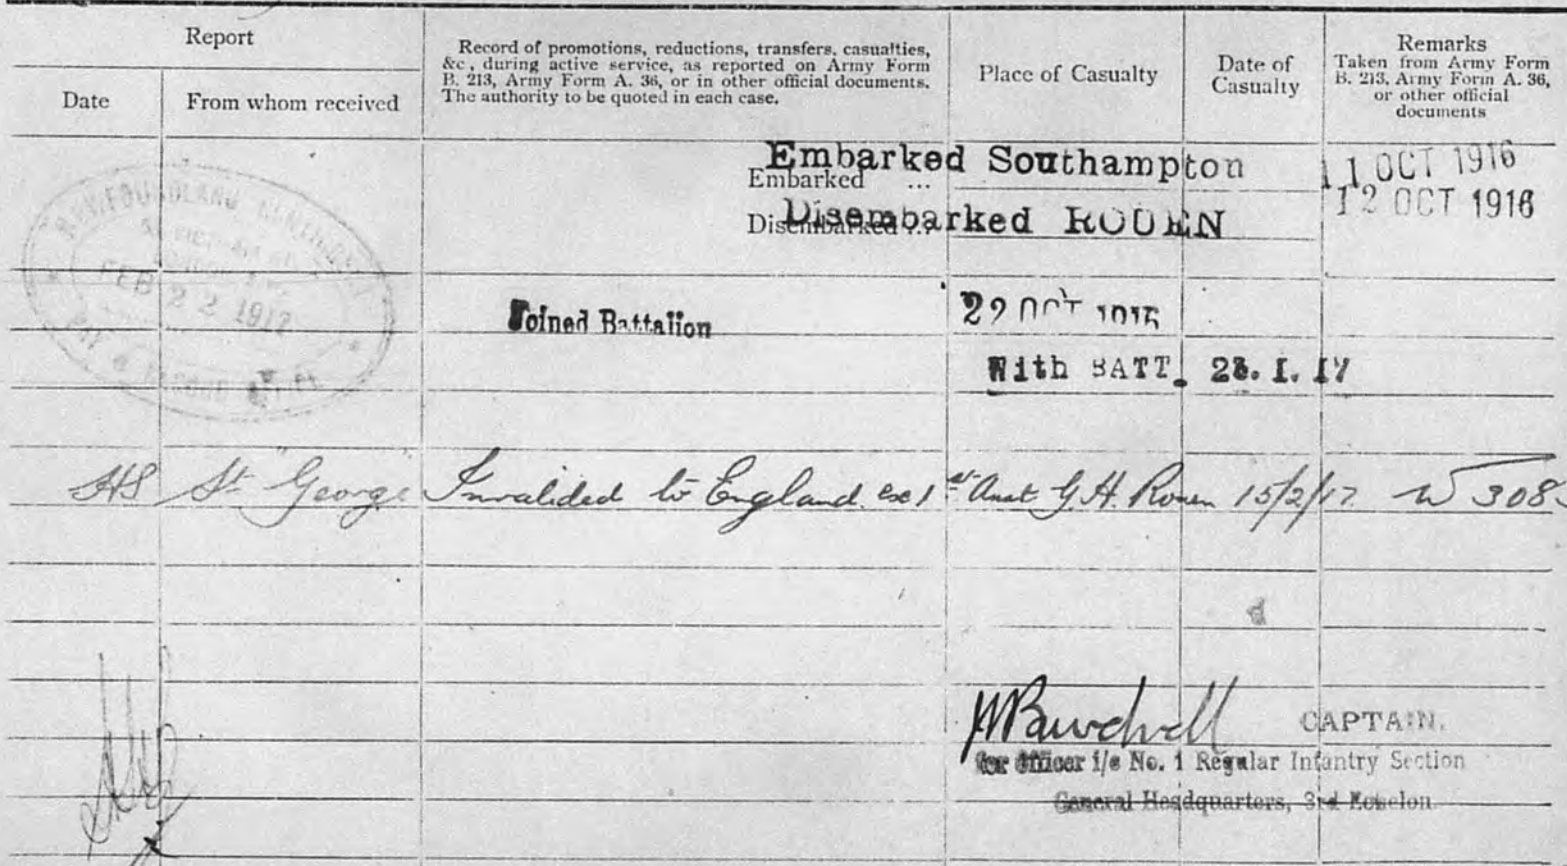 Report
Record of promotions, reductions, transfers, casualties,
&c, during active service, as reported on Army Form
B. 213, Army Form A. 36, or in other official documents.
The authority to be quoted in each case.
Place of Casualty
Date of
Casualty
Remarks
Taken from Army Form
B. 213, Army Form A. 36,
or other official
documents
Date
From whom received
Embarked Southampton 11 OCT 1916
Embarked ...
Disembarked ROUEN 12 OCT 1916
Disembarked ...
FEB 22 1917
Joined Battalion 22 OCT
With BATT. 28. I. 17
HS St George Invalided to England G.H. Rouen 15/2/17 W 308
CAPTAIN.
for Officer i/c No. 1 Regular Infantry Section
General Headquarters, 3rd Echelon